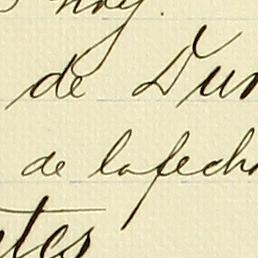 hoy.
de Dur
de la fecha
tes